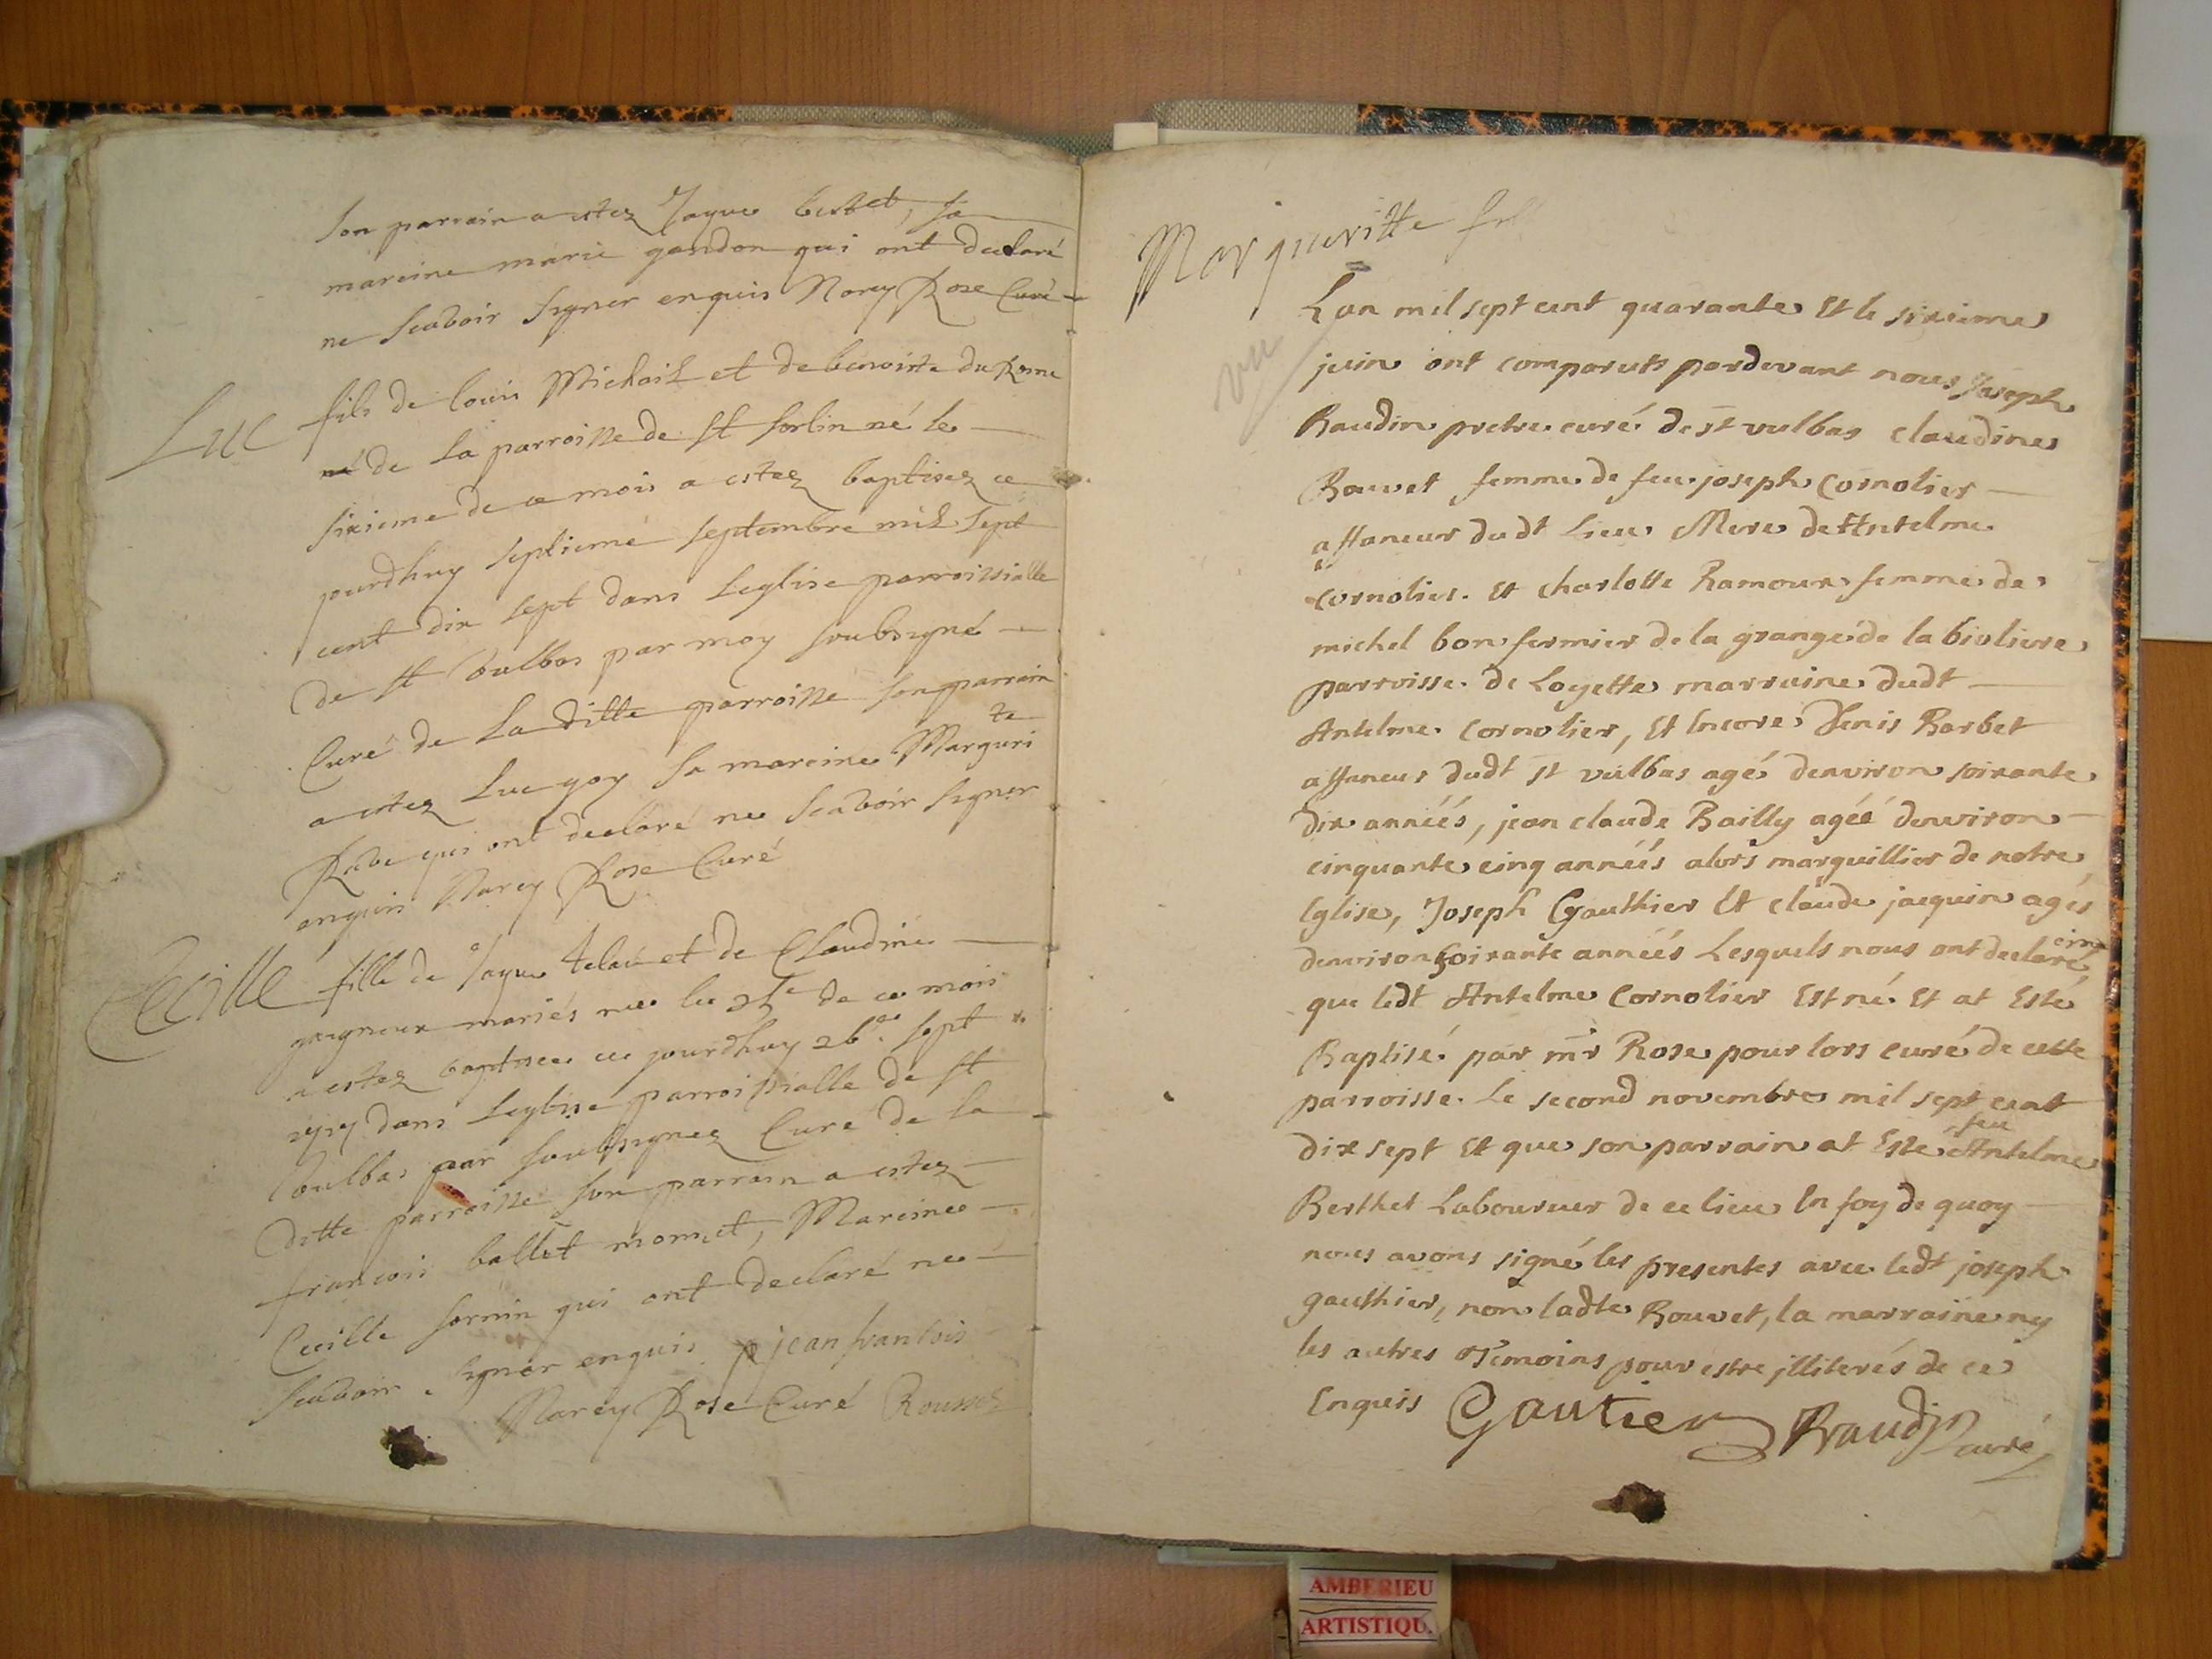 son parrain a estez Jaque bertet, sa
mareine marie gandon qui ont declaré
ne scavoir signer enquis Narcy Rose Curé
Luc fils de louis Michail et de benoiste du Rome
né de la parroisse de st sorlin né le
sixieme de ce mois a estez baptisez ce
jourdhuy septieme septembre mil sept
cent dix sept dans leglise parroissialle
de st Vulbas par moy soubsigné
Curé de la ditte parroisse son parrain
a estez Luc goy sa mareine Marguri
te
Rube qui ont declaré ne scavoir signer
enquis Narcy Rose Curé
Cecille fille de Jaque et de Claudine
gaigneux mariés née le 25e de ce mois
a estez baptisee ce jourdhuy 26e sept
1717 dans leglise parroissialle de st
Voulbas par soubsignez Curé de la
ditte parroisse son parrain a estez
francois ballet momet, Mareine
Cecille sornin qui ont declaré ne
scavoir signer enquis p jean francois
Narcy Rose Curé Rousset
Margueritte fill
vu
Lan mil sept cent quarante Et le sixieme
juin ont comparuts pardevant nous Joseph
Baudin pretre curé de st vulbas claudine
Bouvet femme de feu joseph Cornolier
affaneur dudt Lieu Mere de Antelme
Cornolier. Et charlotte Ramoux femme de
michel bon fermier de la grange de la bioliere
parroisse de Loyette marraine dudt
Antelme Cornolier, Et Encore Denis Barbet
affaneur dudt st vulbas agé denviron soixante
dix années, jean claude Bailly agéé denviron
cinquante cinq années alors marguillier de notre
Eglise, Joseph Gauthier Et claude jacquin agés
denviron soixante années Lesquels nous ont declaré
que ledt Antelme Cornolier Est né Et at Esté
Baptisé par mr Rose pour lors curé de cette
parroisse. Le second novembre mil sept cent
feu
dix sept Et que son parrain at Esté Antelme
Berthet Laboureur de ce lieu En foy de quoy
nous avons signé les presentes avec ledt joseph
gauthier, non ladte Bouvet, la marraine ny
les autres Temoins pour estre jlliterés de ce
Enquis Gautier Baudin curé
AMBERIEU
ARTISTIQU.